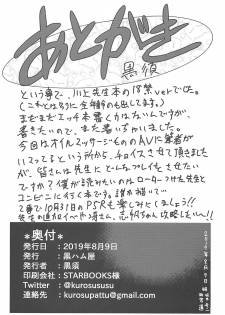 あとがき
黒須
という事で、川上先生本の18禁verでした。
(これとは別に全年齢のも出してます。)
まだまだエッチ本書くかはないんですが、
書きたいので、また書いちゃいました。
今回はオイルマッサージもののAVに筆者が
いまってるという所から、チョイスさせて頂きました
が、皆さんは先生にどんなプレイをさせたい
ですか?僕が続けたいのはローター付けた先生と
コンビニに行く本です。誰か描いて
て事で10月31日のP5Rも楽しみましょう!!
先生の追加イベや
*奥付*
発行日 : 2019年8月9日
発行 : 黒ハム屋
著者 : 黒須
印刷会社 : STARBOOKS様
Twitter : @kurosususu
連絡先 : kurosupattu@gmail.com